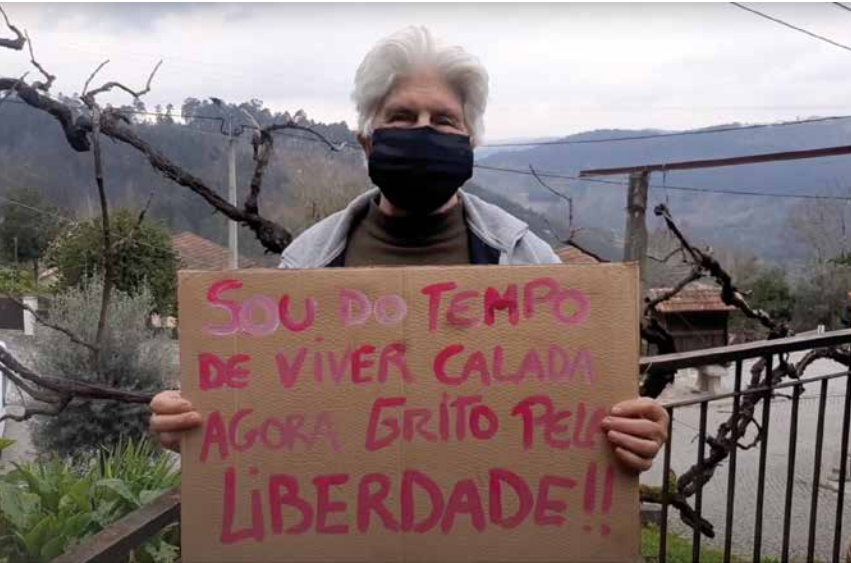 SOU DO TEMPO
DE VIVER CALADA
AGORA GRITO PELA
LIBERDADE!!